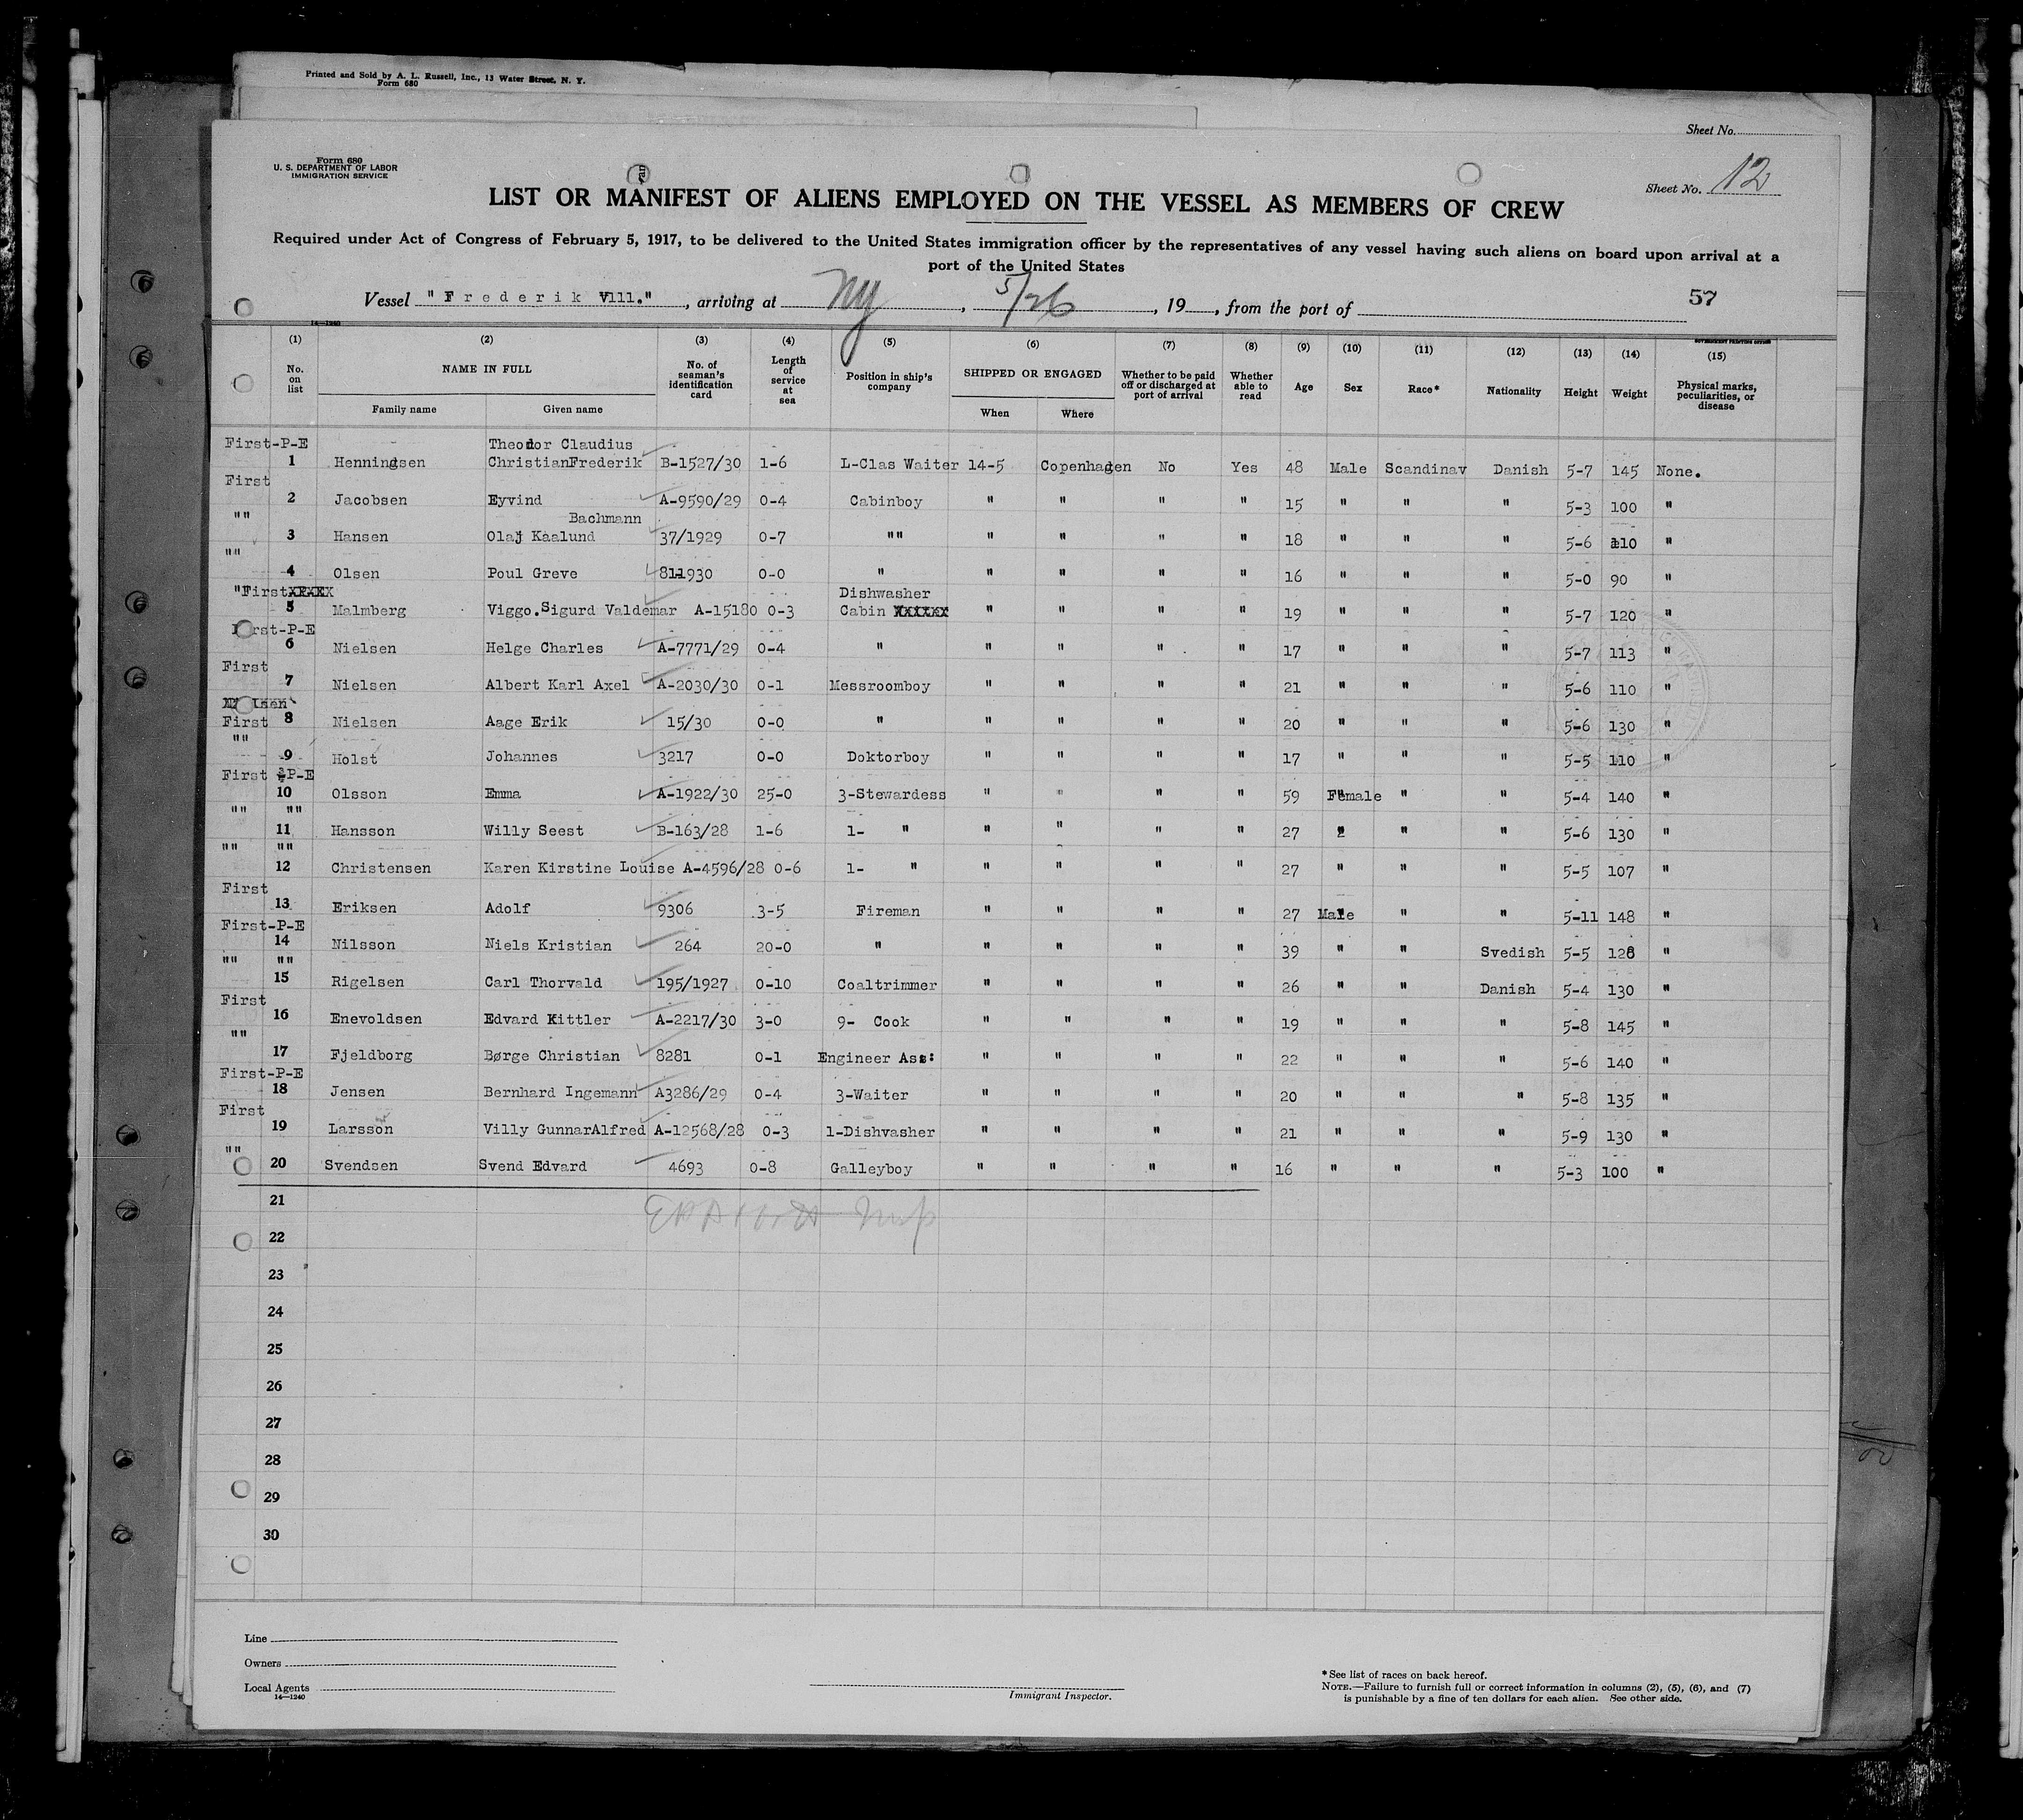 Printed and Sold by A. L. Russell, Inc., 13 Water Street, N. Y.
Form 680
Sheet No.
Form 680
U. S. DEPARTMENT OF LABOR
IMMIGRATION SERVICE
Sheet No. 12
LIST OR MANIFEST OF ALIENS EMPLOYED ON THE VESSEL AS MEMBERS OF CREW
Required under Act of Congress of February 5, 1917, to be delivered to the United States immigration officer by the representatives of any vessel having such aliens on board upon arrival at a
port of the United States
Vessel "Frederik Vlll.", arriving at NY, 5/26, 19, from the port of
57
14—1240
GOVERNMENT PRINTING OFFICE
(1) (2) (3) (4) (5) (6) (7) (8) (9) (10) (11) (12) (13) (14) (15)
No. on list NAME IN FULL No. of seaman's identification card Length of service at sea Position in ship's company SHIPPED OR ENGAGED Whether to be paid off or discharged at port of arrival Whether able to read Age Sex Race* Nationality Height Weight Physical marks, peculiarities, or disease
Family name Given name When Where
First-P-E Theodor Claudius
1 Henningsen ChristianFrederik B-1527/30 1-6 L-Clas Waiter 14-5 Copenhagen No Yes 48 Male Scandinav Danish 5-7 145 None.
First
2 Jacobsen Eyvind A-9590/29 0-4 Cabinboy " " " " 15 " " " 5-3 100 "
"" Bachmann
3 Hansen Olaj Kaalund 37/1929 0-7 "" " " " " 18 " " " 5-6 110 "
""
4 Olsen Poul Greve 811930 0-0 " " " " " 16 " " " 5-0 90 "
"First Dishwasher
5 Malmberg Viggo.Sigurd Valdemar A-15180 0-3 Cabin " " " " 19 " " " 5-7 120 "
First-P-E
6 Nielsen Helge Charles A-7771/29 0-4 " " " " " 17 " " " 5-7 113 "
First
7 Nielsen Albert Karl Axel A-2030/30 0-1 Messroomboy " " " " 21 " " " 5-6 110 "
First 8 Nielsen Aage Erik 15/30 0-0 " " " " " 20 " " " 5-6 130 "
""
9 Holst Johannes 3217 0-0 Doktorboy " " " " 17 " " " 5-5 110 "
First -P-E
10 Olsson Emma A-1922/30 25-0 3-Stewardess " " " " 59 Female " " 5-4 140 "
"" ""
11 Hansson Willy Seest B-163/28 1-6 1- " " " " " 27 " " " 5-6 130 "
"" ""
12 Christensen Karen Kirstine Louise A-4596/28 0-6 1- " " " " " 27 " " " 5-5 107 "
First
13 Eriksen Adolf 9306 3-5 Fireman " " " " 27 Male " " 5-11 148 "
First-P-E
14 Nilsson Niels Kristian 264 20-0 " " " " " 39 " " Svedish 5-5 128 "
"" ""
15 Rigelsen Carl Thorvald 195/1927 0-10 Coaltrimmer " " " " 26 " " Danish 5-4 130 "
First
16 Enevoldsen Edvard Kittler A-2217/30 3-0 9- Cook " " " " 19 " " " 5-8 145 "
""
17 Fjeldborg Børge Christian 8281 0-1 Engineer Ass: " " " " 22 " " " 5-6 140 "
First-P-E
18 Jensen Bernhard Ingemann A3286/29 0-4 3-Waiter " " " " 20 " " " 5-8 135 "
First
19 Larsson Villy GunnarAlfred A-12568/28 0-3 1-Dishvasher " " " " 21 " " " 5-9 130 "
""
20 Svendsen Svend Edvard 4693 0-8 Galleyboy " " " " 16 " " " 5-3 100 "
21
22
23
24
25
26
27
28
29
30
Line
Owners
Local Agents
14—1240
Immigrant Inspector.
* See list of races on back hereof.
NOTE.—Failure to furnish full or correct information in columns (2), (5), (6), and (7)
is punishable by a fine of ten dollars for each alien. See other side.